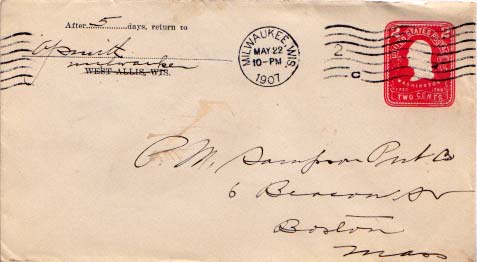 After 5 days, return to
milwaukee
WEST ALLIS, WIS.
MILWAUKEE, WIS.
MAY 22
10-PM
1907
2
C
UNITED STATES POSTAGE
2 2
WASHINGTON
TWO CENTS
P. M. Sampson Pub Co
6 Beacon St
Boston
Mass